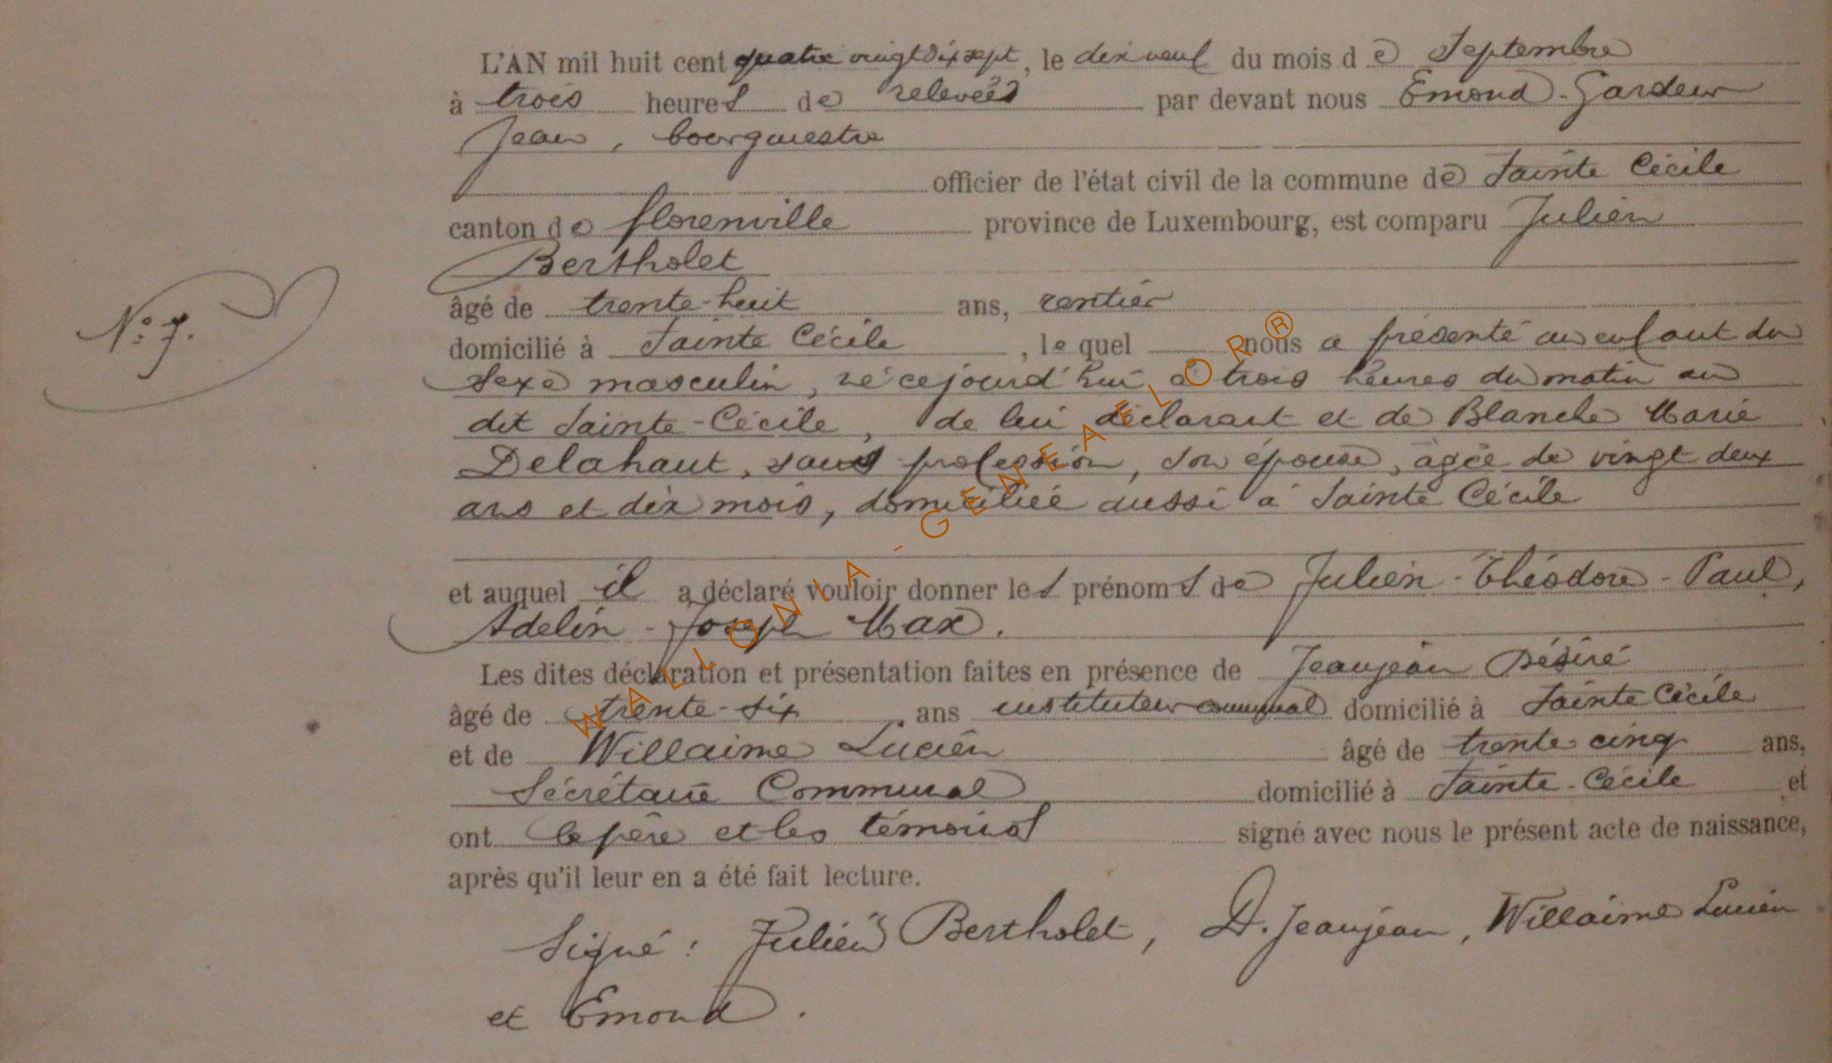 L'AN mil huit cent quatre vingt dix sept, le dix neuf du mois de Septembre
à trois heures de relevées par devant nous Emond-Gardeur
Jean, bourgmestre
officier de l'état civil de la commune de Sainte Cécile
canton de florenville province de Luxembourg, est comparu Julien
Bertholet
âgé de trente-huit ans, rentier
N° 7.
domicilié à Sainte Cécile, le quel nous a présenté un enfant du
sexe masculin, né cejourd'hui à trois heures du matin au
dit Sainte-Cécile, de lui déclarant et de Blanche Marie
Delahaut, sans profession, son épouse, âgée de vingt deux
ans et dix mois, domiciliée aussi à Sainte Cécile
et auquel il a déclaré vouloir donner les prénoms de Julien-Théodore-Paul,
Adelin-Joseph Max.
Les dites déclaration et présentation faites en présence de Jeanjean Désiré
âgé de trente-six ans instituteur communal domicilié à Sainte Cécile
et de Willaime Lucien âgé de trente-cinq ans,
Sécrétaire Communal domicilié à Sainte-Cécile et
ont le père et les témoins signé avec nous le présent acte de naissance,
après qu'il leur en a été fait lecture.
Signé : Julien Bertholet, D. Jeanjean, Willaime Lucien
et Emond.
WALLONIA-GENEAFLOR®